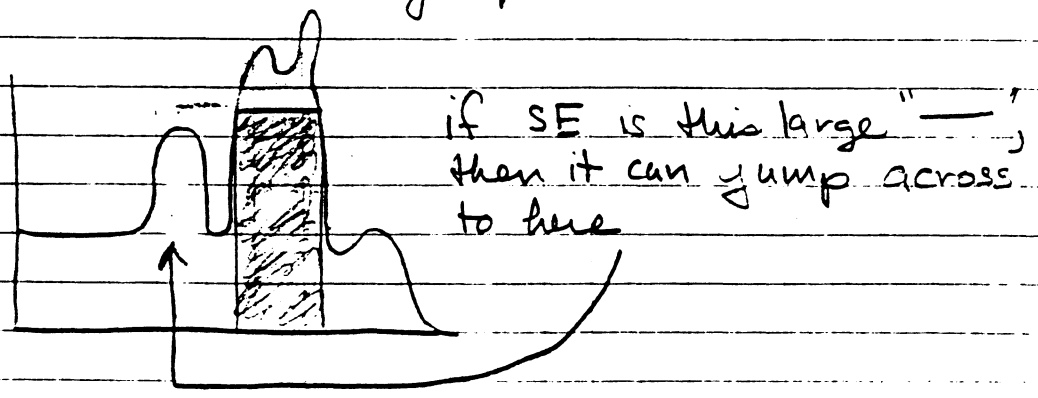 if SE is this large "—",
then it can jump across
to here